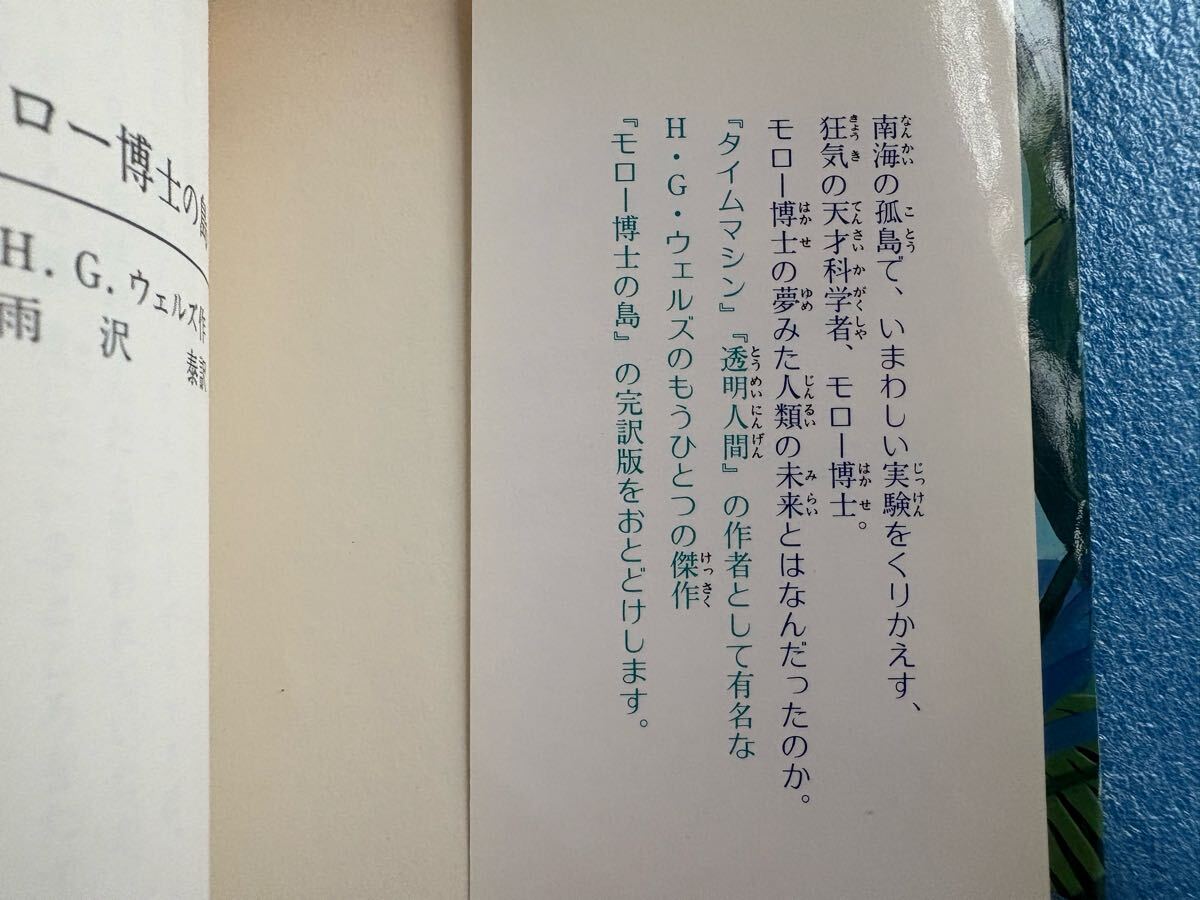 南海の孤島で、いまわしい実験をくりかえす、
狂気の天才科学者、モロー博士。
モロー博士の夢みた人類の未来とはなんだったのか。
『タイムマシン』『透明人間』の作者として有名な
H・G・ウェルズのもうひとつの傑作
『モロー博士の島』の完訳版をおとどけします。
ロー博士の島
H. G. ウェルズ作
雨沢 泰訳